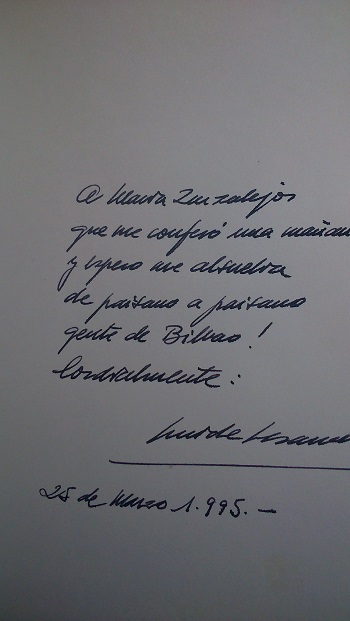 A Maria Zurzalejos
que me confesó una mañan
y espero me absuelva
de paisano a paisano
gente de Bilbao!
Cordialmente:
Luis de
25 de Marzo 1.995.—